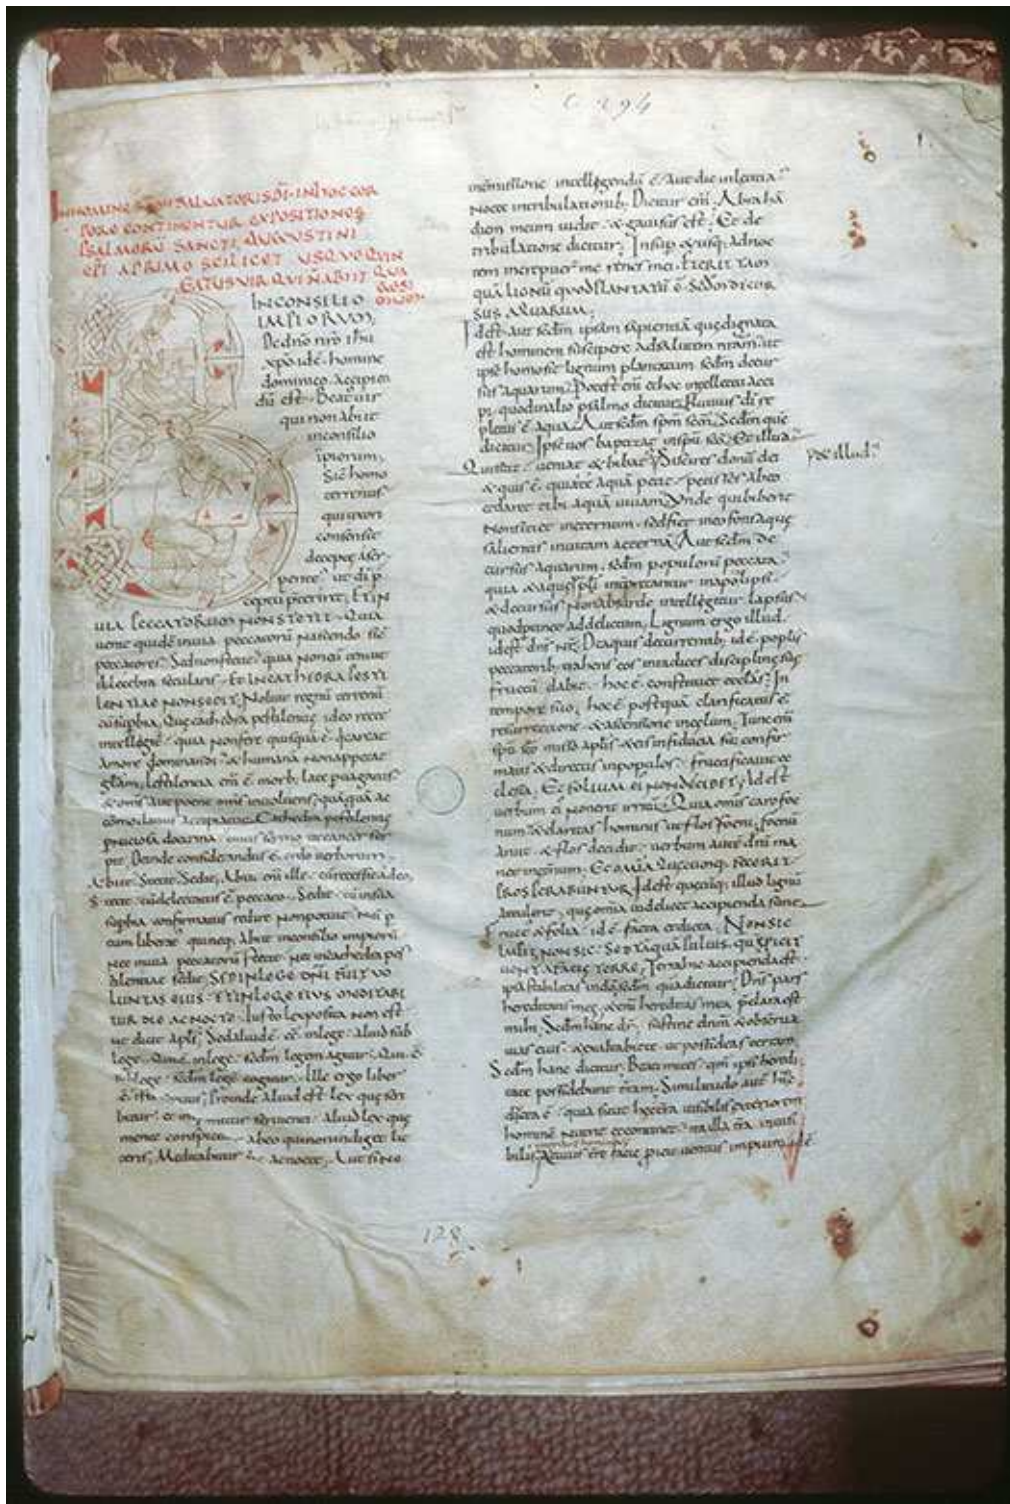 C 294
1.
IN NOMINE SALVATORIS DNI IN HOC COR
PORE CONTINENTUR EXPOSITIONES
PSALMORU SANCTI AUGUSTINI
EPI A PRIMO SCILICET USQUE QUIN
QUA
BEATUS VIR QUI N ABIIT
IN CONSILIO
IMPIORUM;
De dno nro ihu
xpo idẽ homine
dominico accipien
dũ est. Beatus uir
qui non abiit
in consilio
ipiorum;
Sic homo
terrenus
qui uxori
consensit
deceptae a ser
pente ut di p
cepta preteriret; ET IN
UIA PECCATORUM NON STETIT. Quia
uenit quidẽ in uia peccatorũ nascendo sic
peccatores. Sed non stetit quia non eũ tenuit
illecebra secularis. ET IN CATHEDRA PESTI
LENTIAE NON SEDIT; Noluit regnũ terrenũ
cũ supbia. Que cathedra pestilentiae ideo recte
intellegit quia non fere quisquã ẽ qui careat
amore dominandi & humanã non appetat
glam; Pestilentia enĩ ẽ morb; late puagatus
& oms aut poene oms inuoluens; quãquã ac
cõmodatius accipiatur Cathedra pestilentiae
pniciosa doctrina cuius sermo ut cancer ser
pit; Deinde considerandus ẽ ordo uerborum
Abiit Stetit Sedit; Abiit enĩ ille cũ recessit a deo,
Stetit cũ delectatus ẽ peccato. Sedit cũ in sua
supbia confirmatus redire non potuit nisi p
eum liberat qui neq; abiit in consilio impiorũ
nec in uia peccatorũ stetit nec in cathedra pes
tilentiae sedit; SED IN LEGE DNI FUIT VO
LUNTAS EIUS ET IN LEGE EIUS MEDITABI
TUR DIE AC NOCTE. Iusto lex posita non est
ut dicit apls; Sed aliud ẽ eẽ in lege aliud sub
lege. Qui ẽ in lege sedm legem agitur. Qui ẽ
sub lege sedm legẽ agitur. Ille ergo liber
ẽ iste seruus; Proinde aliud est lex que scri
bitur et inponitur seruienti. Aliud lex que
mente conspicitur ab eo qui non indiget lit
teris; Meditabitur die ac nocte, Aut sine
intmissione intellegendũ ẽ Aut die in letitia
Nocte in tribulationib; Dicitur enĩ Abrahã
diem meum uidit & gauisus est; Et de
tribulatione dicitur; Insup & usq; ad noc
tem increpuer me renes mei. ET ERIT TAM
QUÃ LIGNŨ QUOD PLANTATŨ Ẽ SEDM DECUR
SUS AQUARUM;
Id est aut sedm ipsam sapientiã que dignata
est hominem suscipere ad salutem nrãm ut
ipse homo sit lignum plantatum sedm decur
sus aquarum; Potest enĩ et hoc intellectu acci
pi quod in alio psalmo dicitur Fluuius di re
pletus ẽ aqua; Aut sedm spm scm Sedm que
dicitur Ipse uos baptizat in spu sco; Et illud
Qui sitit ueniat & bibat; Si scires donũ dei
& quis ẽ qui a te aquã petit petisses ab eo
et daret tibi aquã uiuam Unde qui biberit
non sitiet in eternum sed fiet in eo fons aque
salientis in uitam eternã; Aut sedm de
cursus aquarum sedm populorũ peccata
quia & aque ppli interpretantur in apocalipsi
& decursus non absurde intellegitur lapsus
quod ptinet ad delictum; Lignum ergo illud
id est dns nr; De aquis decurrentib; id ẽ poplis
peccatorib; trahens eos in radices discipline sue
fructũ dabit hoc ẽ constituet ecclas; In
tempore suo, hoc ẽ postquã clarificatus ẽ
resurrectione & ascensione in celum; Tunc enĩ
spu sco misso aplis & eis in fiducia sui confir
matis & directis in populos fructificauit ec
clesia; ET FOLIUM EI NON DECIDET; Id est
uerbum ei non erit irritũ; Quia omis caro foe
num & claritas hominis ut flos foeni; foenũ
aruit & flos decidit uerbum autẽ dni ma
net in eternũ; ET OMIA QUECUNQ; FECERIT
PROSPERABUNTUR Id est quecũq; illud lignũ
attulerit; que omia uidelicet accipienda sunt
fructus & folia id ẽ facta et dicta; NON SIC
IMPII NON SIC. SED TAQUÃ PULUIS, QUẽ PICIT
UENTUS A FACIE TERRE; Terra hic accipienda est
ipsa stabilitas in dõ sedm qua dicitur; Dns pars
hereditatis meę, etenĩ hereditas mea pclara est
mihi, Sedm hanc dr, sustine dnm & obserua
uias eius & exaltabit te ut possideas terram;
Sedm hanc dicitur Beati mites qm ipsi heredi
tate possidebunt trãm. Similitudo autẽ hinc
ducta ẽ quia sicut hec tra uisibilis exteriorem
hominẽ nutrit et continet ita illa tra inuisi
bilis
a facie
impium
p se illud
128